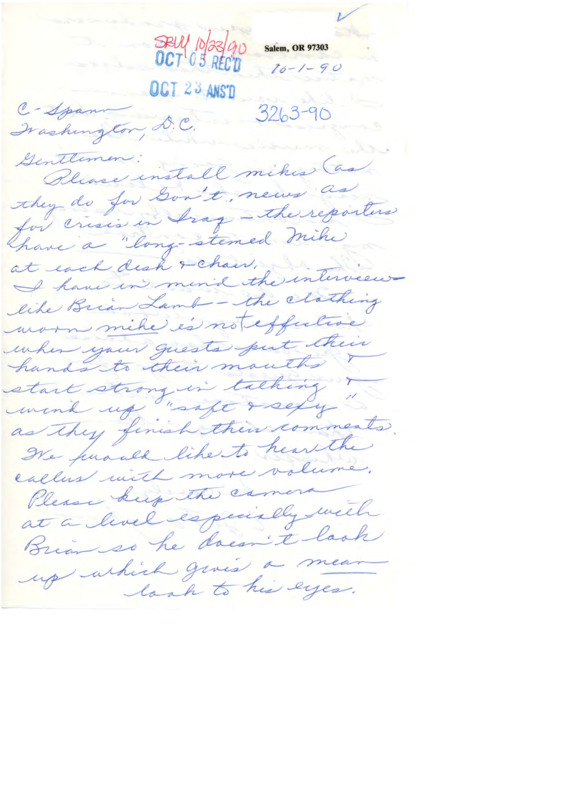 SRVY 10/23/90
OCT 05 REC'D
Salem, OR 97303
10-1-90
OCT 23 ANS'D
3263-90
C-Spann
Washington, D.C.
Gentlemen:
Please install mikes (as
they do for Gov't. news as
for crisis in Iraq – the reporters
have a "long-stemed Mike
at each desk & chair.
I have in mind the interviews
like Brian Lamb – the clothing
worn mike is not effective
when your guests put their
hands to their mouths &
start strong in talking &
wind up "soft & sexy"
as they finish their comments.
We would like to hear the
callers with more volume.
Please keep the camera
at a level especially with
Brian so he doesn't look
up which gives a mean
look to his eyes.